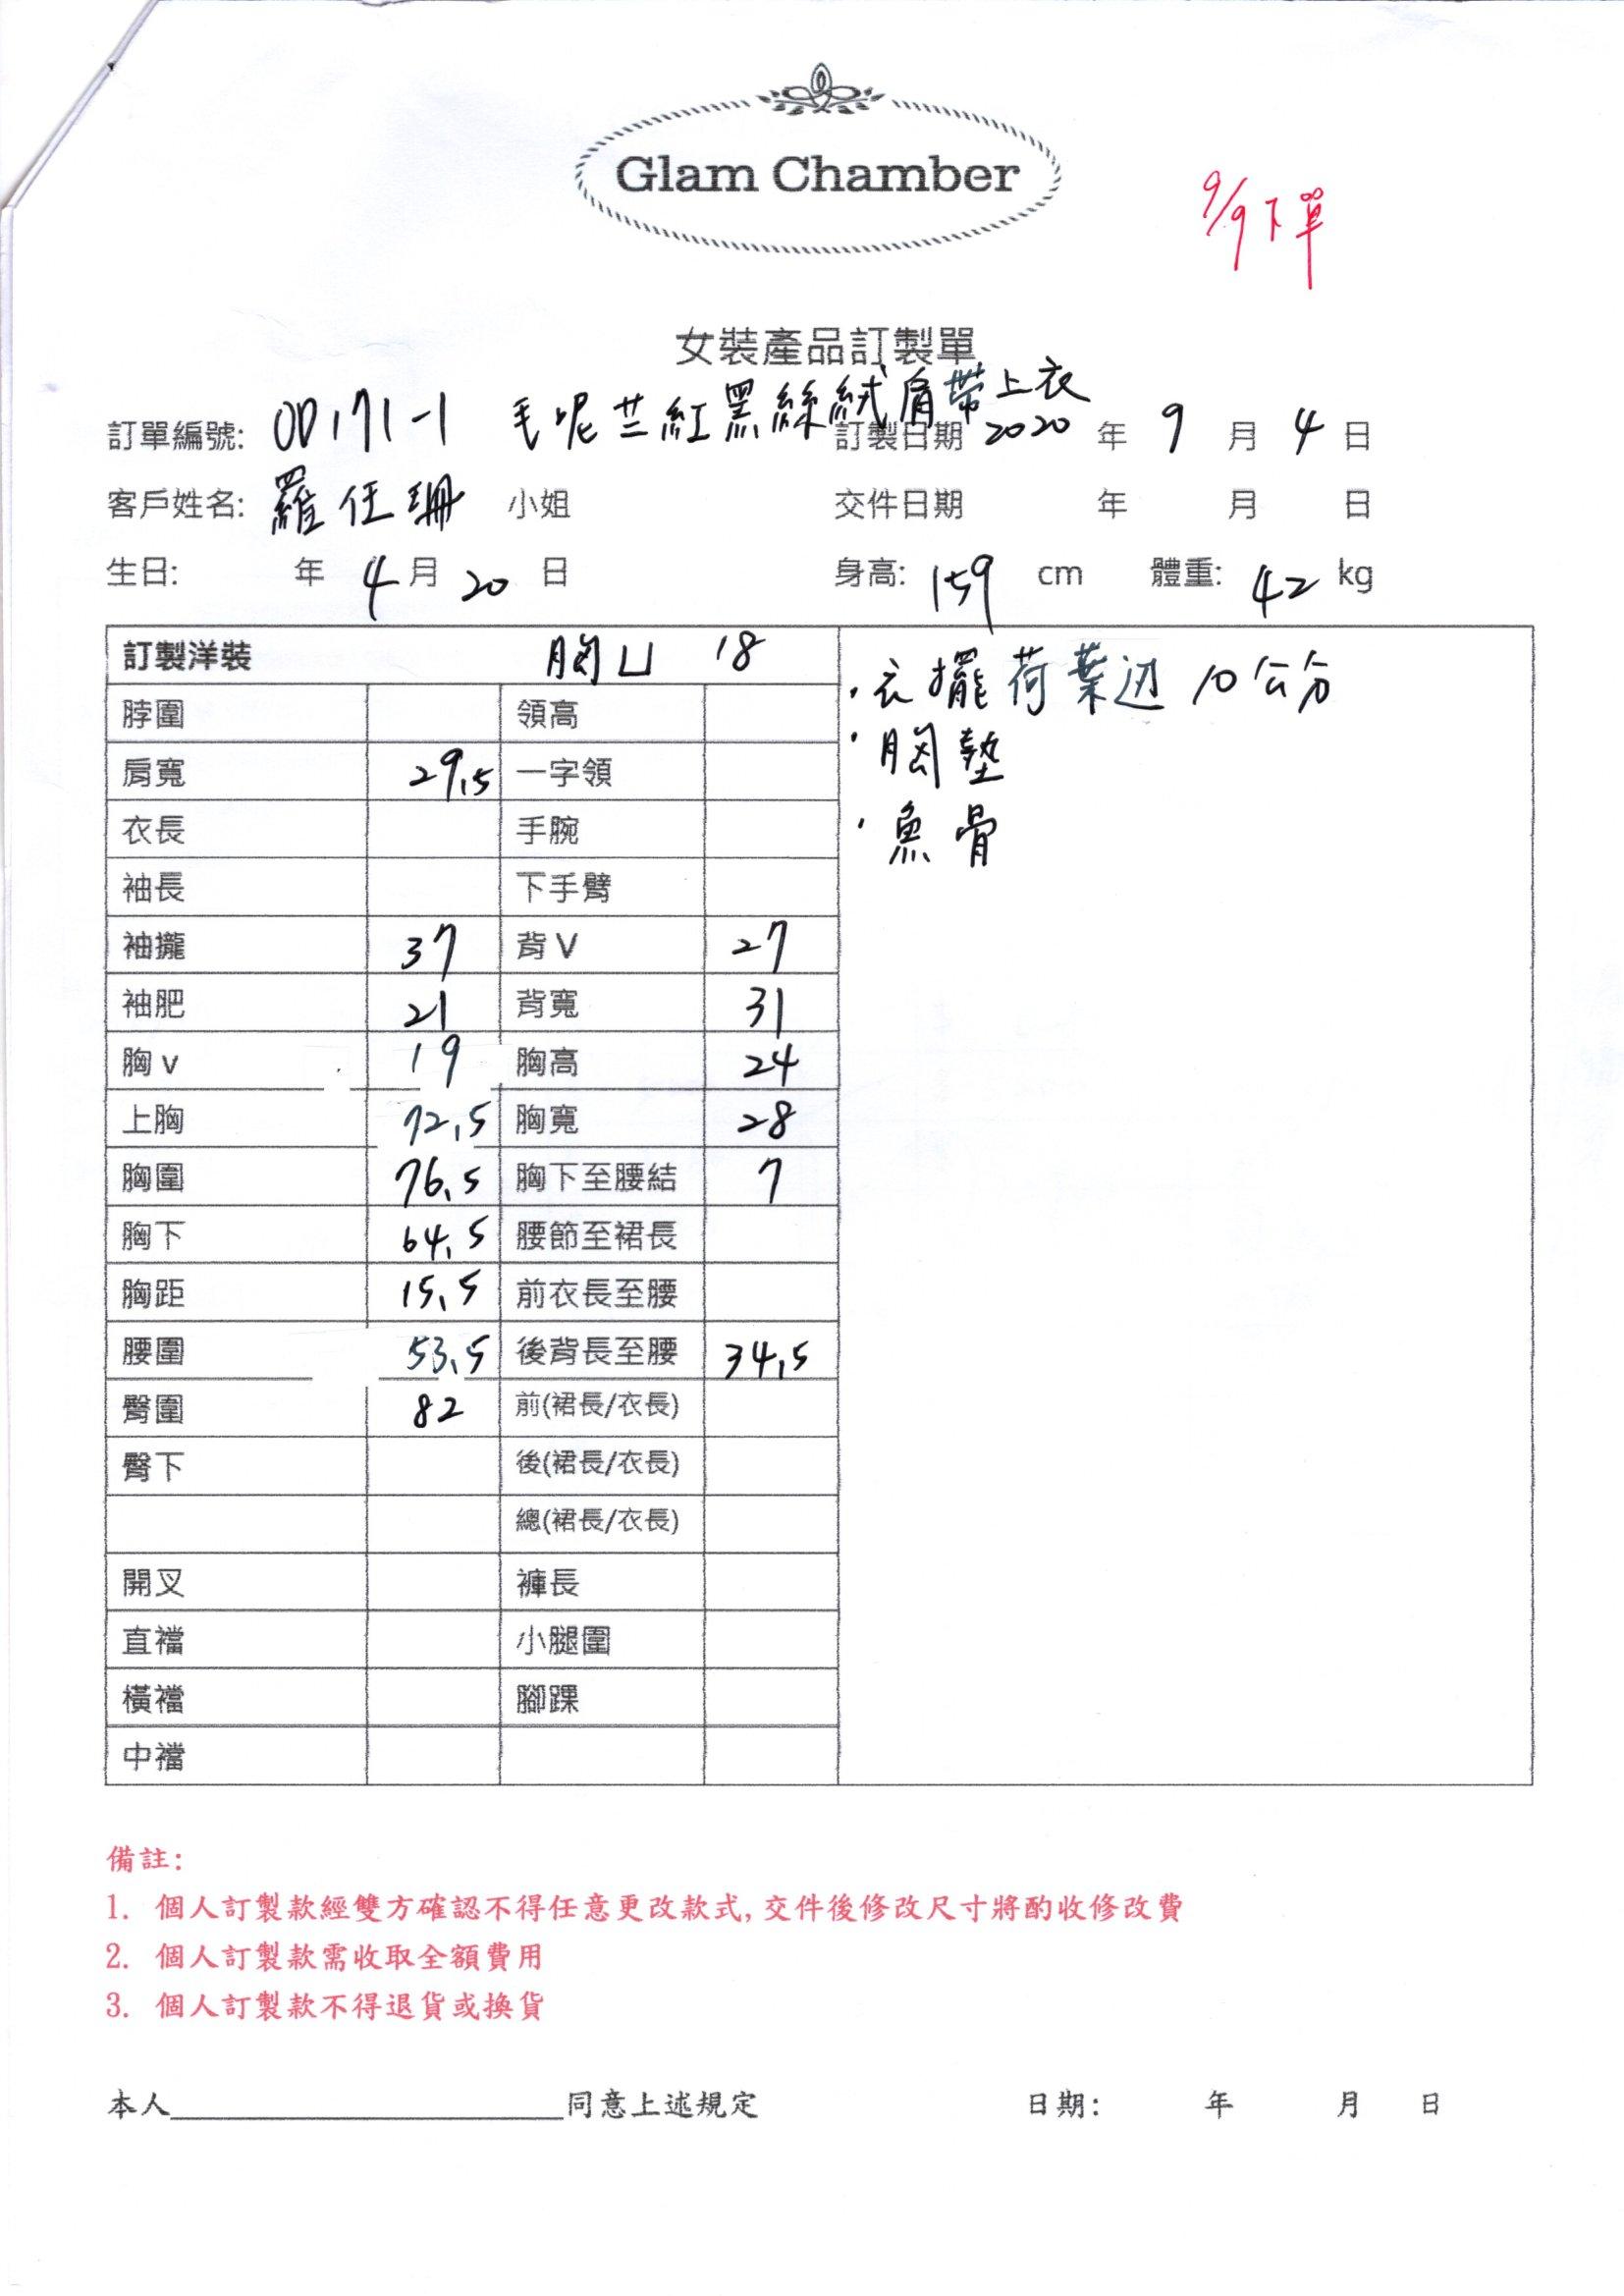 Glam Chamber
9/9下單
女裝產品訂製單
訂單編號: OD171-1 毛呢芷紅黑絲絨肩帶上衣
訂製日期 2020 年 9 月 4 日
客戶姓名: 羅任珊 小姐 交件日期 年 月 日
生日: 年 4 月 20 日 身高: 159 cm 體重: 42 kg
訂製洋裝 胸凵 18
脖圍 領高
肩寬 29.5 一字領
衣長 手腕
袖長 下手臂
袖攏 37 背V 27
袖肥 21 背寬 31
胸v 19 胸高 24
上胸 72.5 胸寬 28
胸圍 76.5 胸下至腰結 7
胸下 64.5 腰節至裙長
胸距 15.5 前衣長至腰
腰圍 53.5 後背長至腰 34.5
臀圍 82 前(裙長/衣長)
臀下 後(裙長/衣長)
總(裙長/衣長)
開叉 褲長
直襠 小腿圍
橫襠 腳踝
中襠
·衣擺荷葉边10公分
·胸墊
·魚骨
備註:
1. 個人訂製款經雙方確認不得任意更改款式,交件後修改尺寸將酌收修改費
2. 個人訂製款需收取全額費用
3. 個人訂製款不得退貨或換貨
本人 同意上述規定 日期: 年 月 日